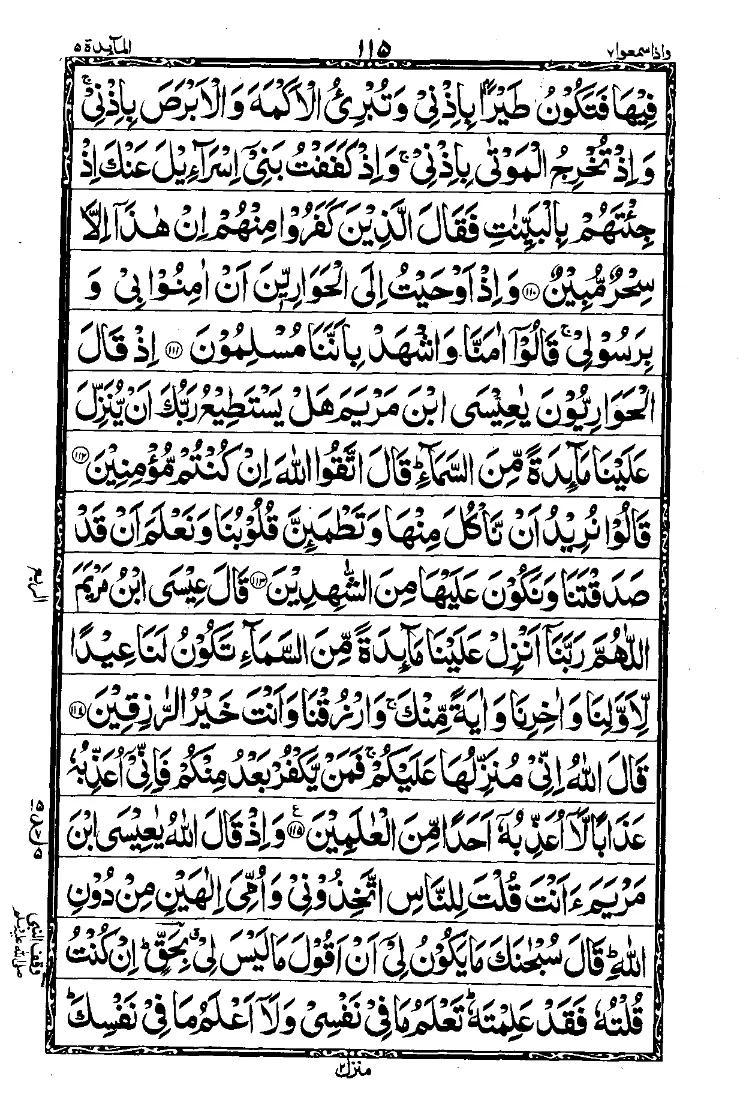 واذا سمعوا ٧
١١٥
المآئدة ٥
فِيْهَا فَتَكُوْنُ طَيْرًۢا بِاِذْنِيْ وَتُبْرِئُ الْاَكْمَهَ وَالْاَبْرَصَ بِاِذْنِيْ ۚ
وَاِذْ تُخْرِجُ الْمَوْتٰى بِاِذْنِيْ ۚ وَاِذْ كَفَفْتُ بَنِيْۤ اِسْرَآءِيْلَ عَنْكَ اِذْ
جِئْتَهُمْ بِالْبَيِّنٰتِ فَقَالَ الَّذِيْنَ كَفَرُوْا مِنْهُمْ اِنْ هٰذَاۤ اِلَّا
سِحْرٌ مُّبِيْنٌ ۝١١٠ وَاِذْ اَوْحَيْتُ اِلَى الْحَوَارِيّٖنَ اَنْ اٰمِنُوْا بِيْ وَ
بِرَسُوْلِيْ ۚ قَالُوْۤا اٰمَنَّا وَاشْهَدْ بِاَنَّنَا مُسْلِمُوْنَ ۝١١١ اِذْ قَالَ
الْحَوَارِيُّوْنَ يٰعِيْسَى ابْنَ مَرْيَمَ هَلْ يَسْتَطِيْعُ رَبُّكَ اَنْ يُّنَزِّلَ
عَلَيْنَا مَآئِدَةً مِّنَ السَّمَآءِ ؕ قَالَ اتَّقُوا اللّٰهَ اِنْ كُنْتُمْ مُّؤْمِنِيْنَ ۝١١٢
قَالُوْا نُرِيْدُ اَنْ نَّاْكُلَ مِنْهَا وَتَطْمَئِنَّ قُلُوْبُنَا وَنَعْلَمَ اَنْ قَدْ
صَدَقْتَنَا وَنَكُوْنَ عَلَيْهَا مِنَ الشّٰهِدِيْنَ ۝١١٣ قَالَ عِيْسَى ابْنُ مَرْيَمَ
اللّٰهُمَّ رَبَّنَاۤ اَنْزِلْ عَلَيْنَا مَآئِدَةً مِّنَ السَّمَآءِ تَكُوْنُ لَنَا عِيْدًا
لِّاَوَّلِنَا وَاٰخِرِنَا وَاٰيَةً مِّنْكَ ۚ وَارْزُقْنَا وَاَنْتَ خَيْرُ الرّٰزِقِيْنَ ۝١١٤
قَالَ اللّٰهُ اِنِّيْ مُنَزِّلُهَا عَلَيْكُمْ ۚ فَمَنْ يَّكْفُرْ بَعْدُ مِنْكُمْ فَاِنِّيْۤ اُعَذِّبُهٗ
عَذَابًا لَّاۤ اُعَذِّبُهٗۤ اَحَدًا مِّنَ الْعٰلَمِيْنَ ۝١١٥ ع وَاِذْ قَالَ اللّٰهُ يٰعِيْسَى ابْنَ
مَرْيَمَ ءَاَنْتَ قُلْتَ لِلنَّاسِ اتَّخِذُوْنِيْ وَاُمِّيَ اِلٰهَيْنِ مِنْ دُوْنِ
اللّٰهِ ؕ قَالَ سُبْحٰنَكَ مَا يَكُوْنُ لِيْۤ اَنْ اَقُوْلَ مَا لَيْسَ لِيْ ۗ بِحَقٍّ ؕ اِنْ كُنْتُ
قُلْتُهٗ فَقَدْ عَلِمْتَهٗ ؕ تَعْلَمُ مَا فِيْ نَفْسِيْ وَلَاۤ اَعْلَمُ مَا فِيْ نَفْسِكَ ؕ
الربع
وقف النبی صلی اللہ علیہ وسلم
منزل ٢